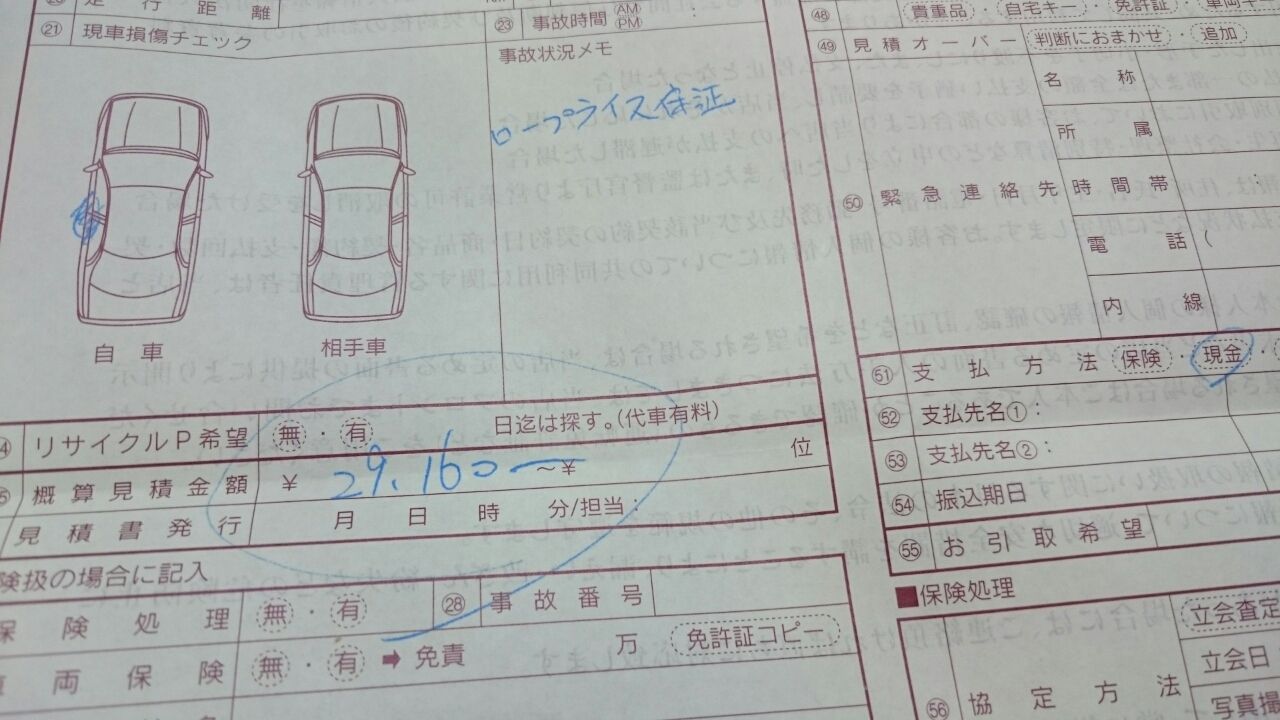 走行距離
㉑ 現車損傷チェック
㉓ 事故時間 AM PM
事故状況メモ
ロープライス保証
自車
相手車
リサイクルP希望 無・有 日迄は探す。(代車有料)
概算見積金額 ¥ 29,160 ー ～¥ 位
見積書発行 月 日 時 分/担当:
険扱の場合に記入
保険処理 無・有 ㉘ 事故番号
両保険 無・有 ➡ 免責 万 免許証コピー
㊽ 貴重品・自宅キー・免許証・車両キー
㊾ 見積オーバー 判断におまかせ・追加
㊿ 緊急連絡先
名称
所属
時間帯
電話 (
内線
51 支払方法 保険・現金・
52 支払先名①:
53 支払先名②:
54 振込期日
55 お引取希望
■保険処理
56 協定方法
立会査定
立会日
写真撮